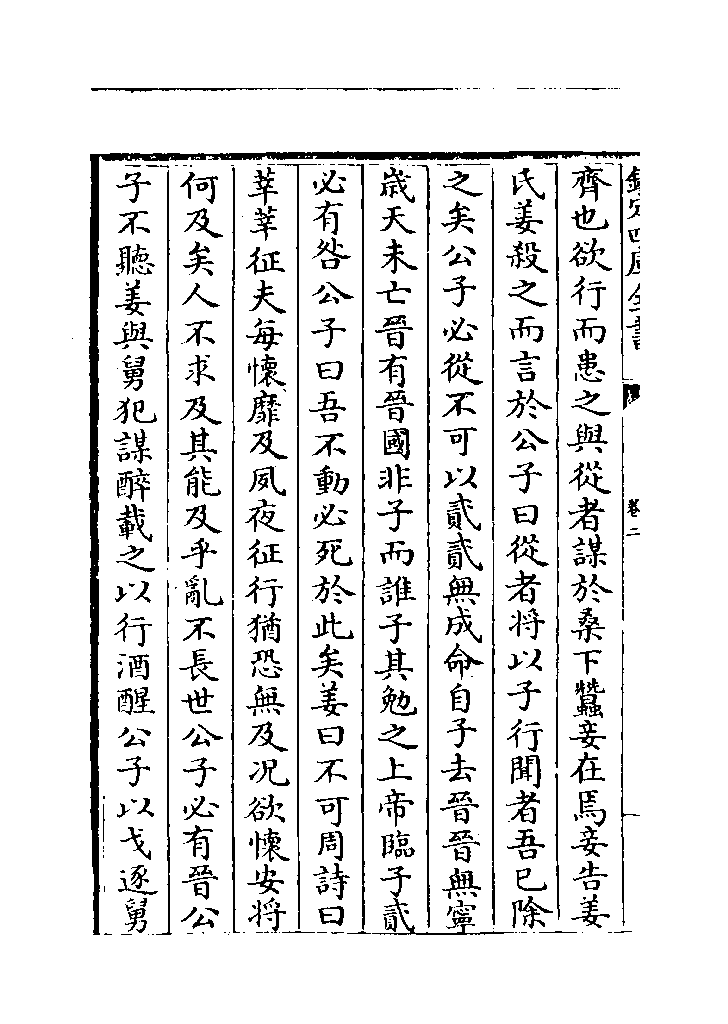 欽定四庫全書
卷二
齊也欲行而患之與從者謀於桑下蠶妾在焉妾告姜
氏姜殺之而言於公子曰從者將以子行聞者吾已除
之矣公子必從不可以貳貳無成命自子去晉晉無寧
歳天未亡晉有晉國非子而誰子其勉之上帝臨子貳
必有咎公子曰吾不動必死於此矣姜曰不可周詩曰
莘莘征夫每懷靡及夙夜征行猶恐無及况欲懷安將
何及矣人不求及其能及乎亂不長世公子必有晉公
子不聽姜與舅犯謀醉載之以行酒醒公子以戈逐舅